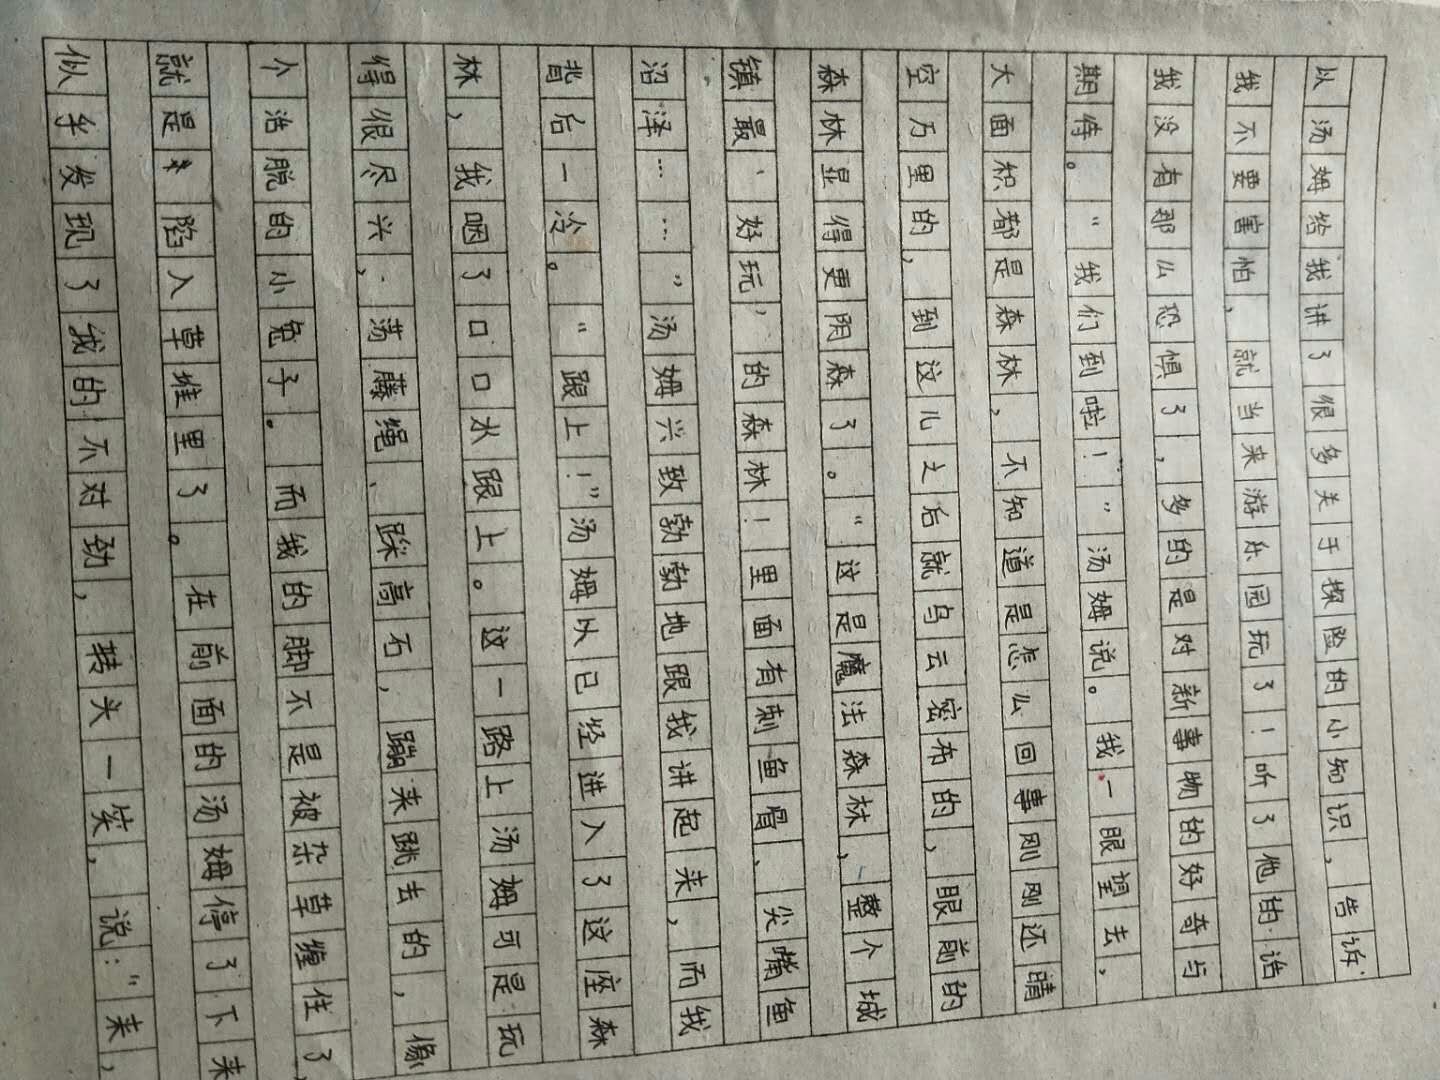 以汤姆给我讲了很多关于探险的小知识，告诉
我不要害怕，就当来游乐园玩了！听了他的话
我没有那么恐惧了，多的是对新事物的好奇与
期待。“我们到啦！”汤姆说。我一眼望去，
大面积都是森林，不知道是怎么回事刚刚还晴
空万里的，到这儿之后就乌云密布的，眼前的
森林显得更阴森了。“这是魔法森林，整个城
镇最‘好玩’的森林！里面有刺鱼骨、尖嘴鱼
沼泽……”汤姆兴致勃勃地跟我讲起来，而我
背后一冷。“跟上！”汤姆以已经进入了这座森
林，我咽了口口水跟上。这一路上汤姆可是玩
得很尽兴，荡藤绳、踩高石，蹦来跳去的，像
个活脱的小兔子。而我的脚不是被杂草缠住了，
就是陷入草堆里了。在前面的汤姆停了下来
似乎发现了我的不对劲，转头一笑，说：“来，